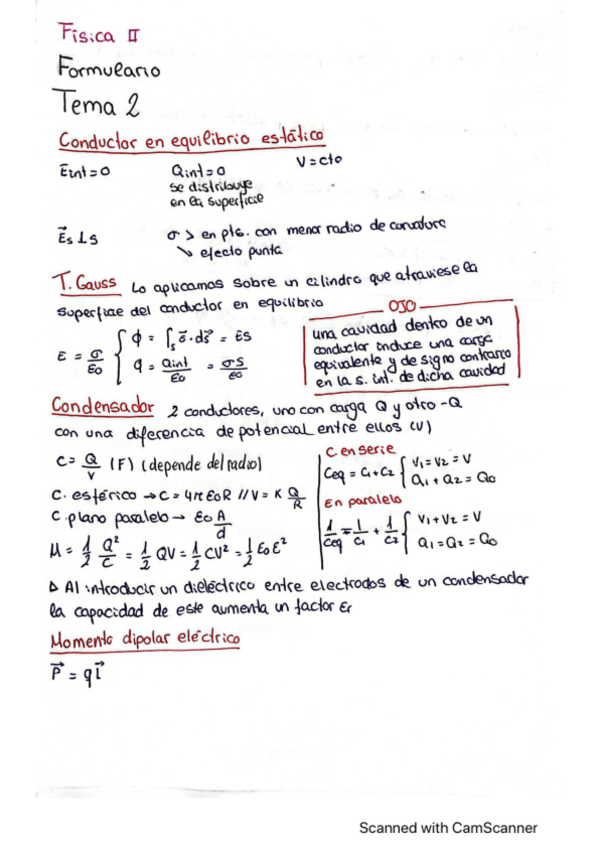 Física II
Formulario
Tema 2
Conductor en equilibrio estático
Eint=0 Qint=0 V=cto
se distribuye
en la superficie
E⃗s⊥S σ > en pts. con menor radio de curvatura
↘ efecto punta
T. Gauss Lo aplicamos sobre un cilindro que atraviese la
superficie del conductor en equilibrio
OJO
una cavidad dentro de un
conductor induce una carga
equivalente y de signo contrario
en la s. int. de dicha cavidad
E = σ/εo { ϕ = ∫s e⃗·ds⃗ = ES
q = Qint/εo = σS/εo
Condensador 2 conductores, uno con carga Q y otro -Q
con una diferencia de potencial entre ellos (V)
C = Q/V (F) (depende del radio)
C. esférico → C = 4πεoR // V = K Q/R
C. plano paralelo → εo A/d
M = 1/2 Q²/C = 1/2 QV = 1/2 CV² = 1/2 εoE²
C en serie
Ceq = C1+C2 { V1=V2=V
Q1+Q2=Qo
En paralelo
1/Ceq = 1/C1 + 1/C2 { V1+V2=V
Q1=Q2=Qo
▷ Al introducir un dieléctrico entre electrodos de un condensador
la capacidad de este aumenta un factor Er
Momento dipolar eléctrico
P⃗ = ql⃗
Scanned with CamScanner